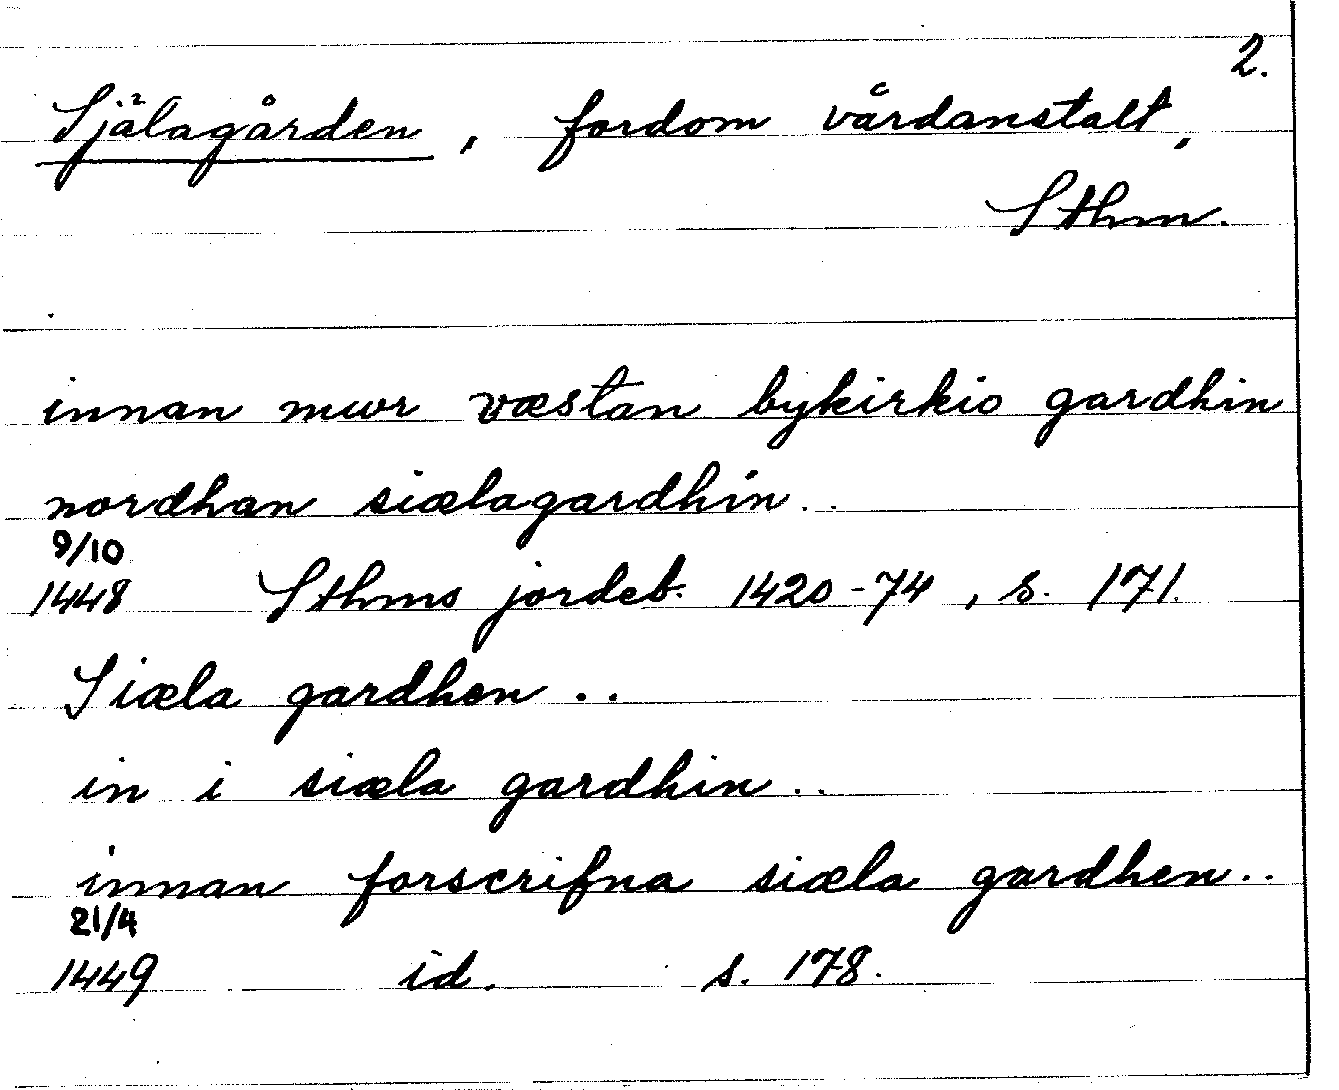 2.
Själagården, fordom vårdanstalt,
Sthm.
innan mwr wæstan bykirkio gardhin
nordhan siælagardhin..
9/10
1448 Sthms jordeb. 1420-74, s. 171.
Siæla gardhen..
in i siæla gardhin..
innan forscrifna siæla gardhen..
21/4
1449 id. s. 178.